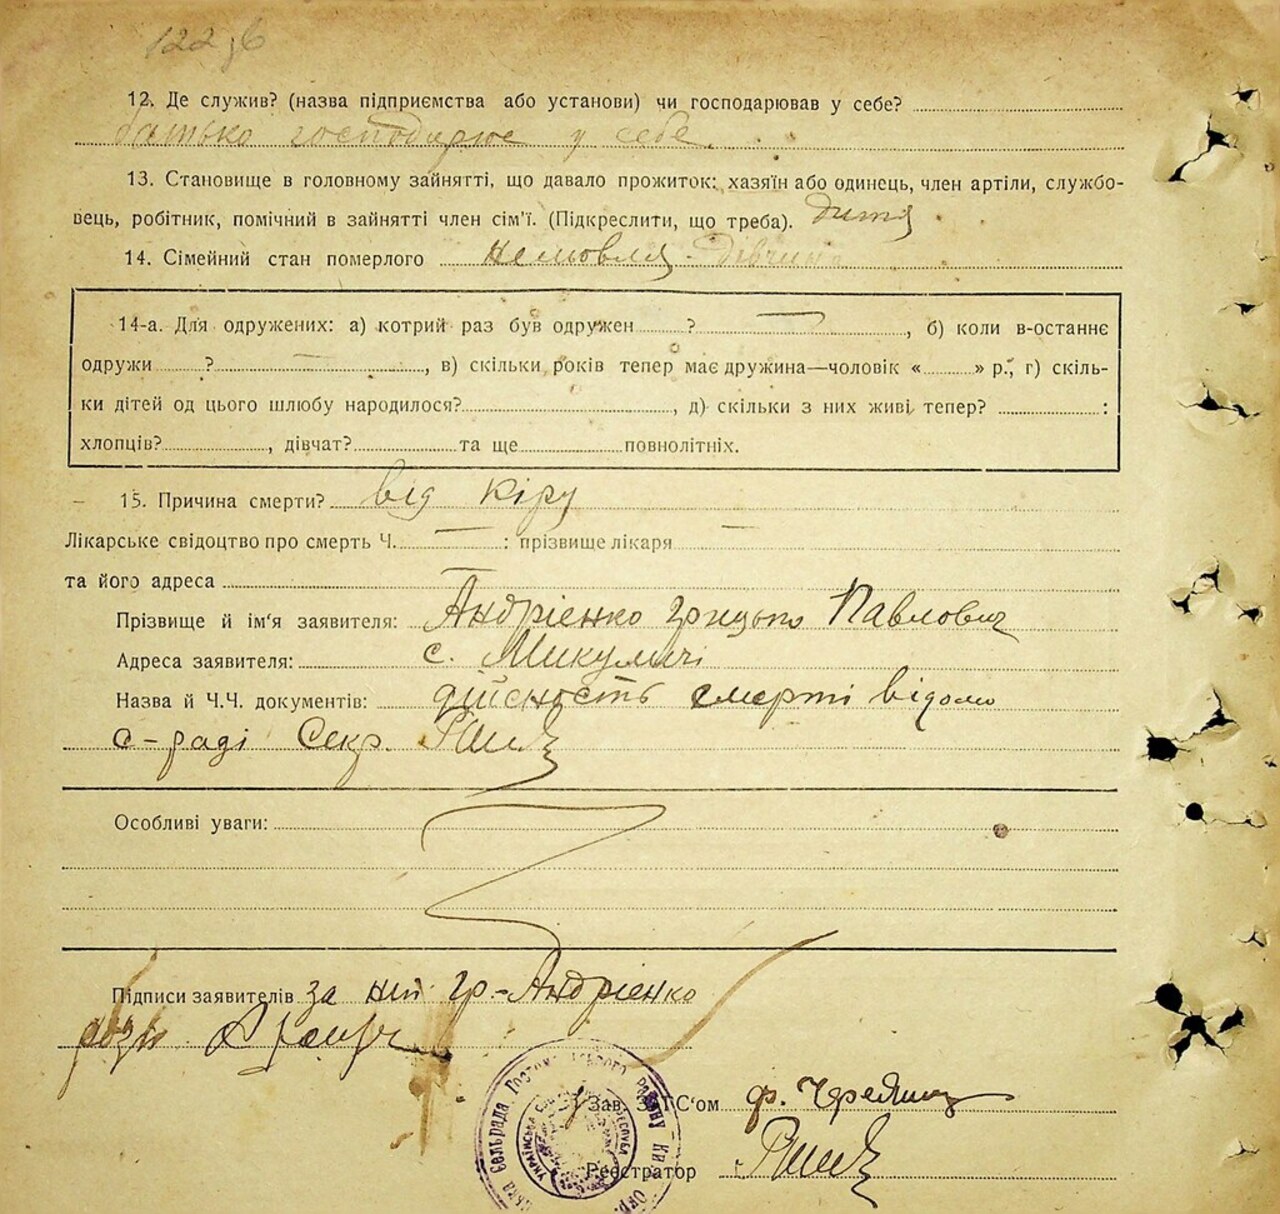 122
12. Де служив? (назва підприємства або установи) чи господарював у себе?
батько господарює у себе.
13. Становище в головному зайнятті, що давало прожиток: хазяїн або одинець, член артіли, службо-
вець, робітник, помічний в зайнятті член сім'ї. (Підкреслити, що треба). Дитя
14. Сімейний стан померлого немовля - дівчина
14-а. Для одружених: а) котрий раз був одружен ? —, б) коли в-останнє
одружи ? —, в) скільки років тепер має дружина—чоловік « » р., г) скіль-
ки дітей од цього шлюбу народилося? , д) скільки з них живі тепер? :
хлопців? , дівчат? та ще повнолітніх.
15. Причина смерти? від кіру
Лікарське свідоцтво про смерть Ч. — : прізвище лікаря —
та його адреса —
Прізвище й ім'я заявителя: Андрієнко Грицько Павлович
Адреса заявителя: с. Микуличі
Назва й Ч.Ч. документів: дійсність смерті відомо
с-раді Секр.
Особливі уваги:
Підписи заявителів за неп гр.-Андрієнко
розп
Сельрада Гостомельського Району Ки Окр.
Українська Соц
Зав. ЗАГС'ом
Реєстратор